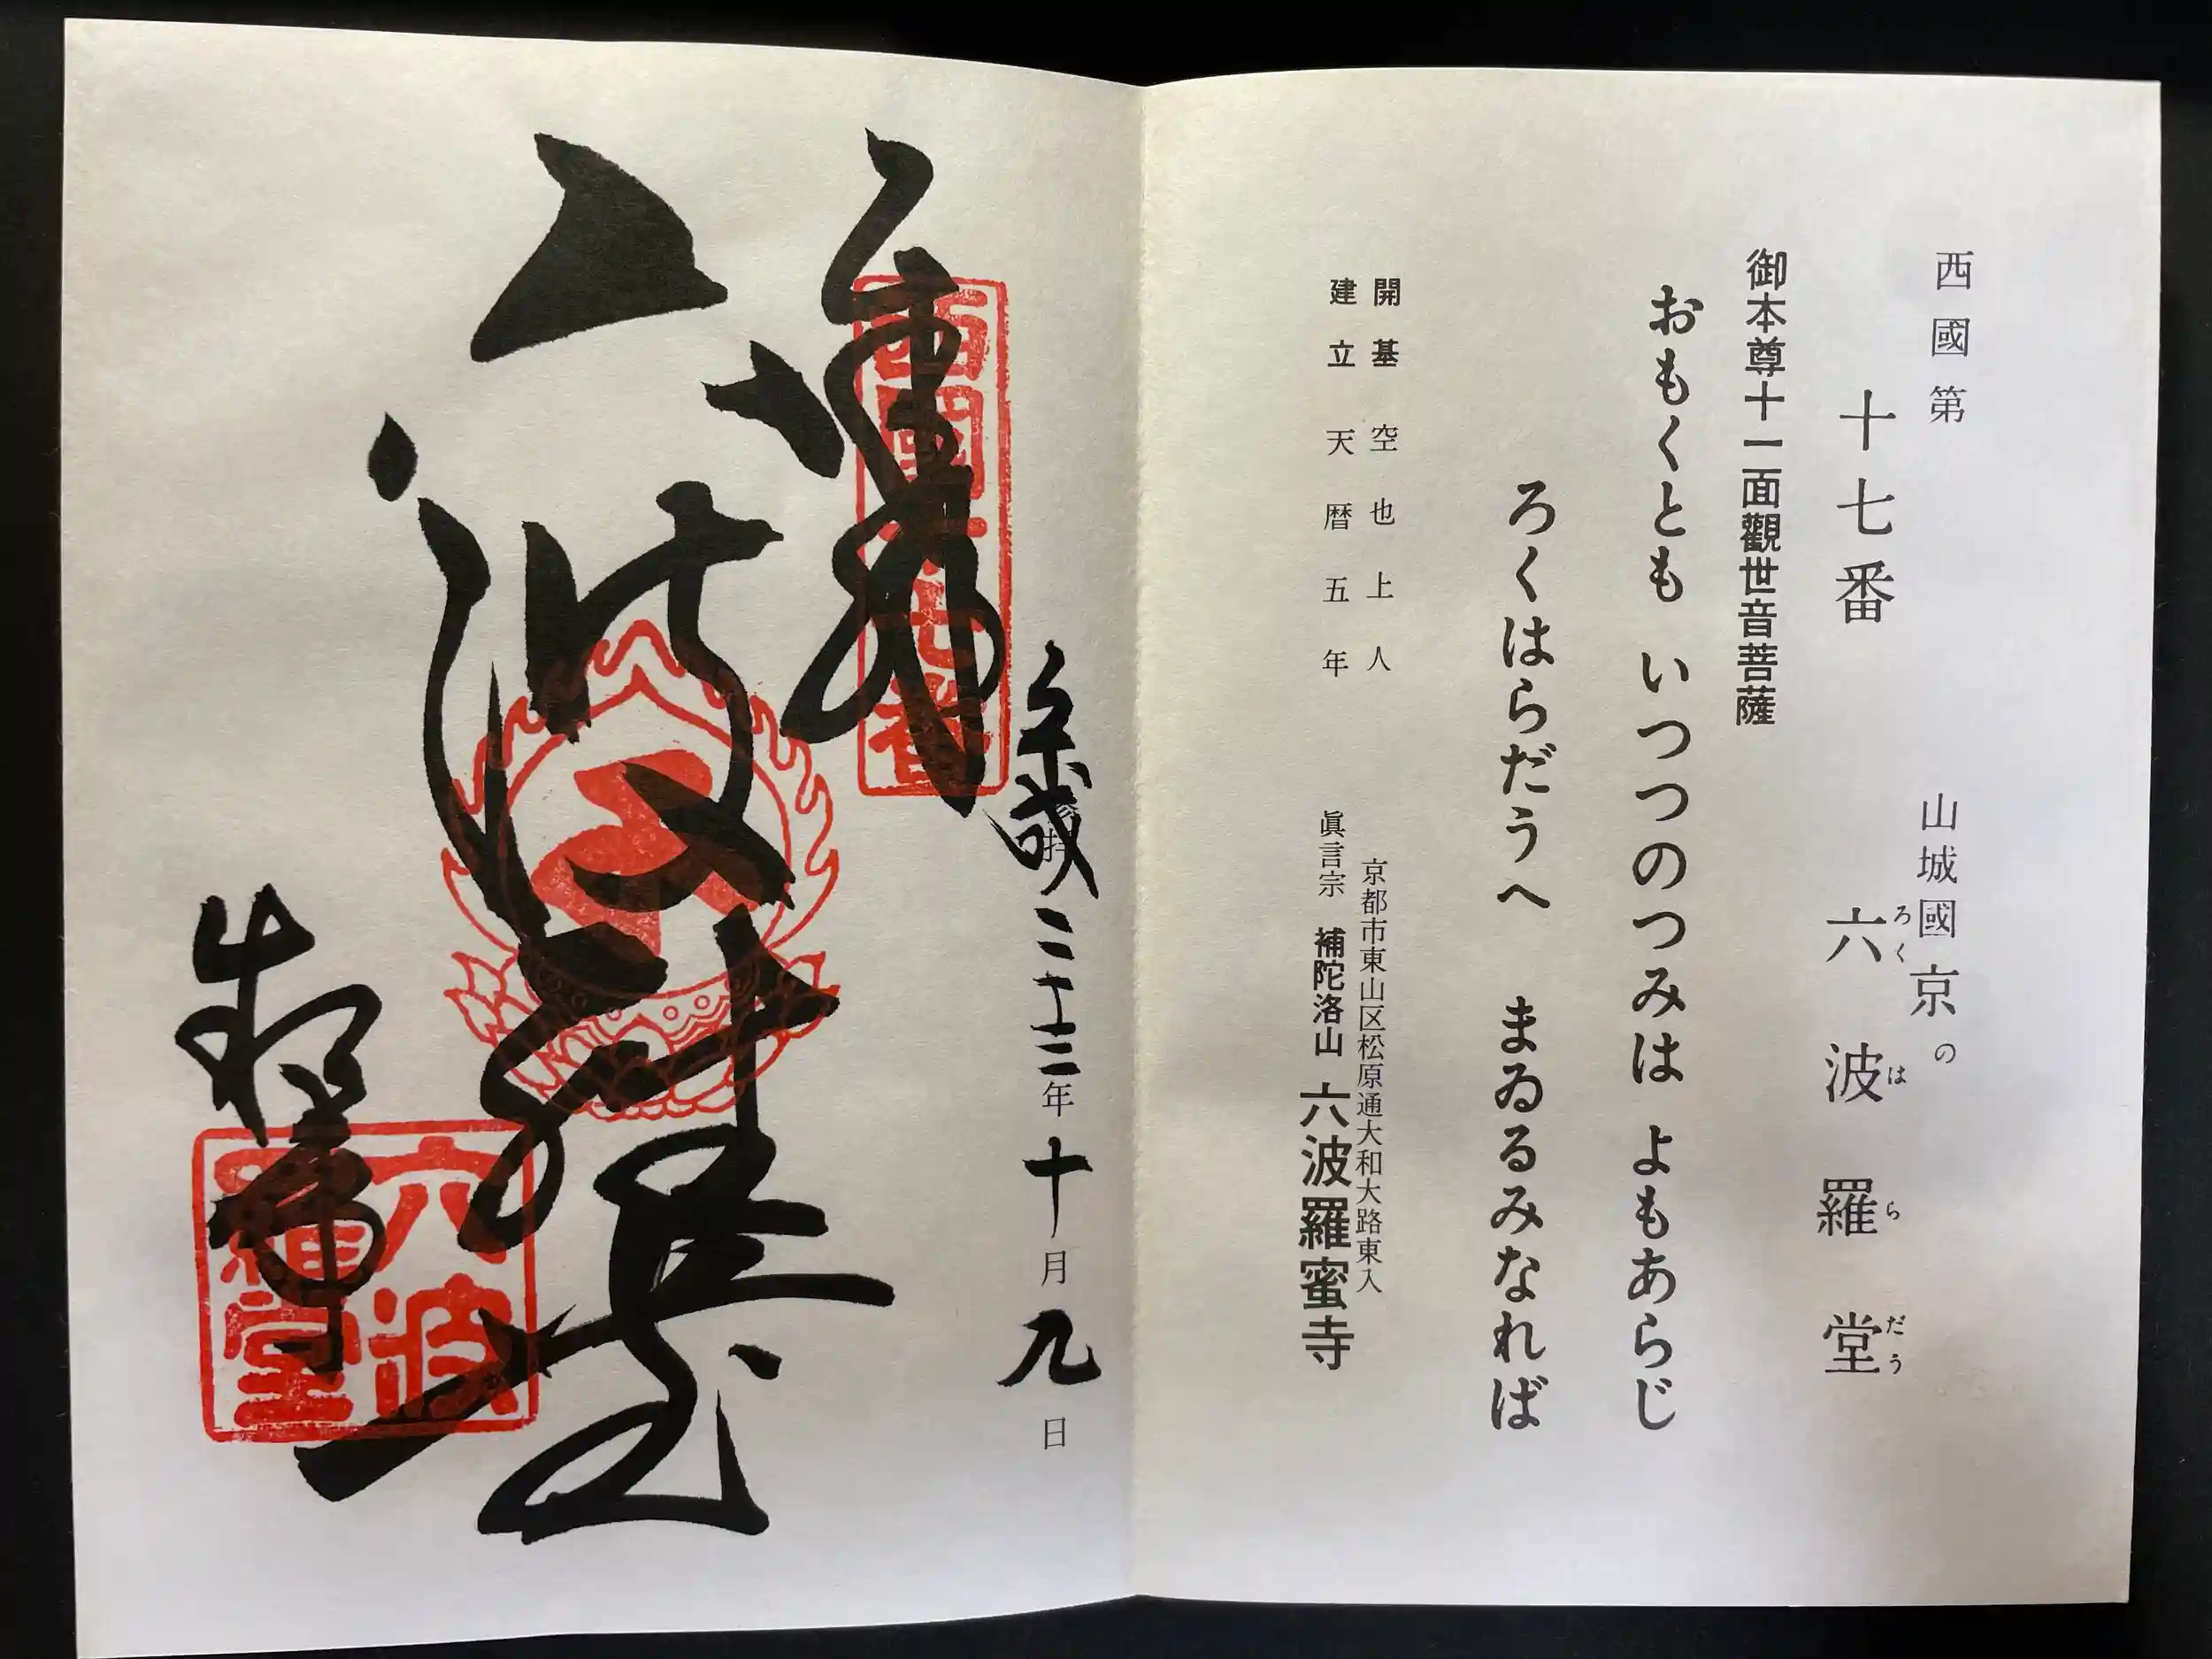 西國第 山城國京の
十七番 六波羅堂
ろくはらだう
御本尊十一面觀世音菩薩
おもくとも いつつのつみは よもあらじ
ろくはらだうへ まゐるみなれば
開基 空也上人
建立 天暦五年
京都市東山区松原通大和大路東入
眞言宗 補陀洛山 六波羅蜜寺
平成二十三年十月九日
西國十七番
六波羅堂
六波羅堂